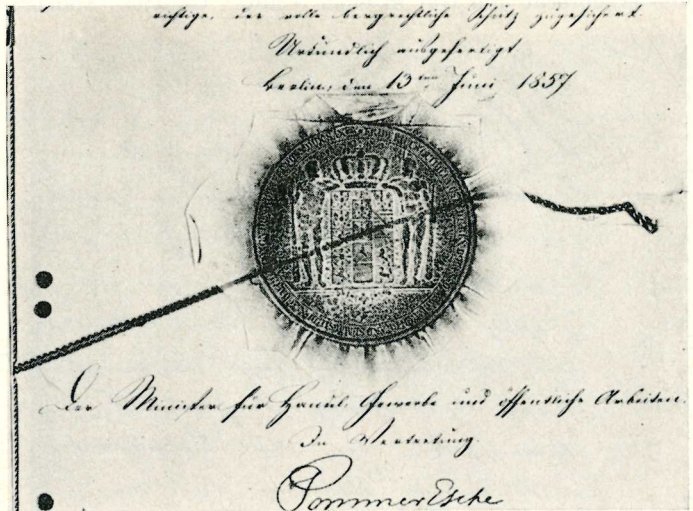 richtige, der volle bergrechtliche Schutz zugesichert.
Urkundlich ausgefertigt
Berlin, den 13ten Juni 1857
Der Minister für Handel, Gewerbe und öffentliche Arbeiten.
In Vertretung.
PommerEsche